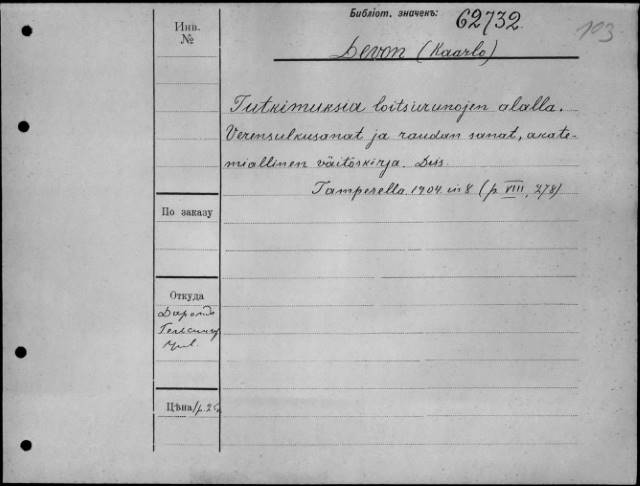 Библіот. значекъ: 62732
103
Инв.
№
Devon (Kaarlo)
Tutkimuksia loitsurunojen alalla.
Verensulkusanat ja raudan sanat, akate-
miallinen väitöskirja. Diss.
Tamperella. 1904. in 8 (p. VIII, 278)
По заказу
Откуда
Цѣна